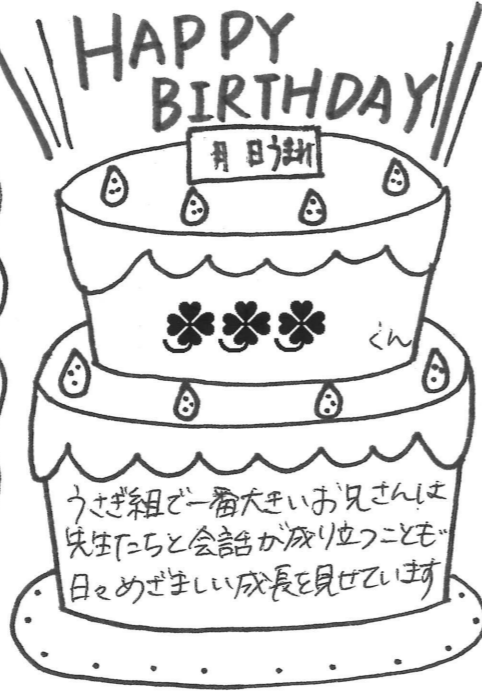 HAPPY
BIRTHDAY
月 日うまれ
くん
うさぎ組で一番大きいお兄さんは
先生たちと会話が成り立つことも
日々めざましい成長を見せています